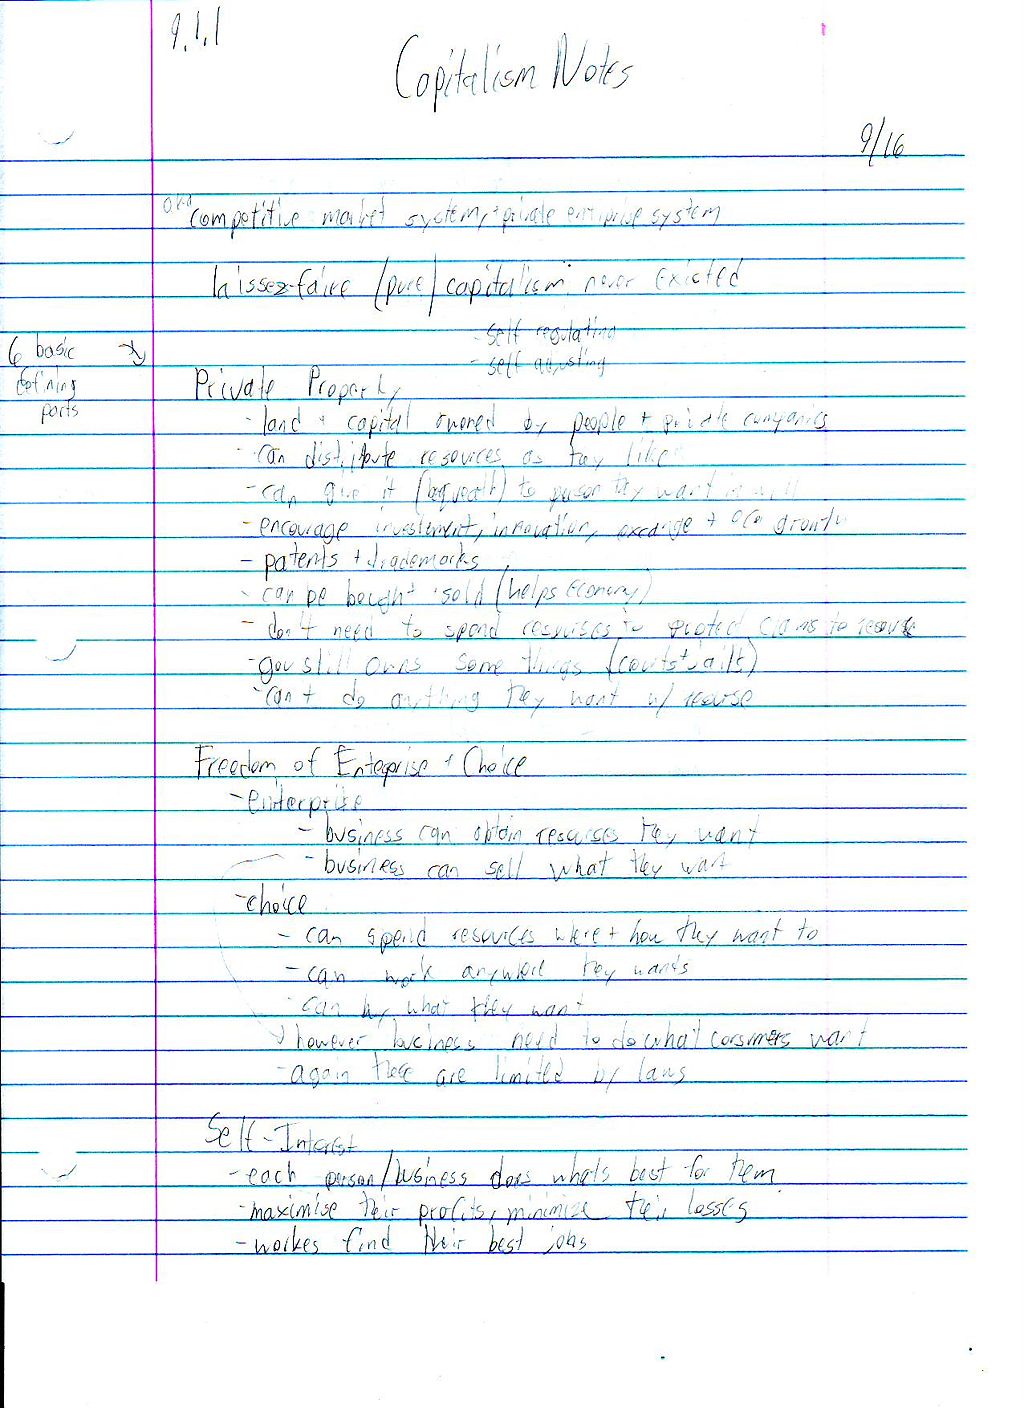 9.1.1
Capitalism Notes
9/16
competitive market system, + private enterprise system
laissez-faire (pure) capitalism never existed
- self regulating
- self adjusting
6 basic
defining
parts
Private Property
- land + capital owned by people + private companies
- can distribute resources as they like
- can give it (bequeath) to person they want in will
- encourage investement, innovation, exchange + growth
- patents + trademarks
- can be bought + sold (helps Economy)
- don't need to spend resourses to claims to
- gov still owns some things (courts + jails)
- can't do anything they want w/
Freedom of Enterprise + Choice
- enterprise
- business can obtain resourses they want
- business can sell what they want
- choice
- can spend resources where + how they want to
- can work anywhere they wants
- can buy what they want
however business need to do what consumers want
- again these are limited by laws
Self-Interest
- each person/business does whats best for them
- maximise their profits, minimize their losses
- workes find their best jobs